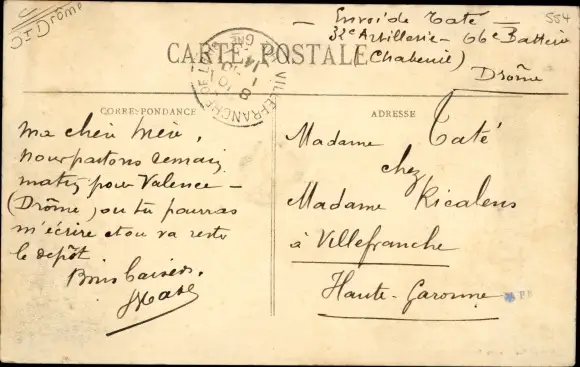 OI Drôme
554
— Envoi de Taté —
32e Artillerie - 66e Batterie
(Chabeuil)
Drôme
CARTE POSTALE
VILLEFRANCHE DE LAUR
CORRESPONDANCE
ADRESSE
Ma chère Mère,
nous partons demain
matin pour Valence -
(Drôme) où tu pourras
m'écrire et où va rester
le depôt
Bons baisers.
Madame Taté
chez
Madame Ricalens
à Villefranche
Haute-Garonne